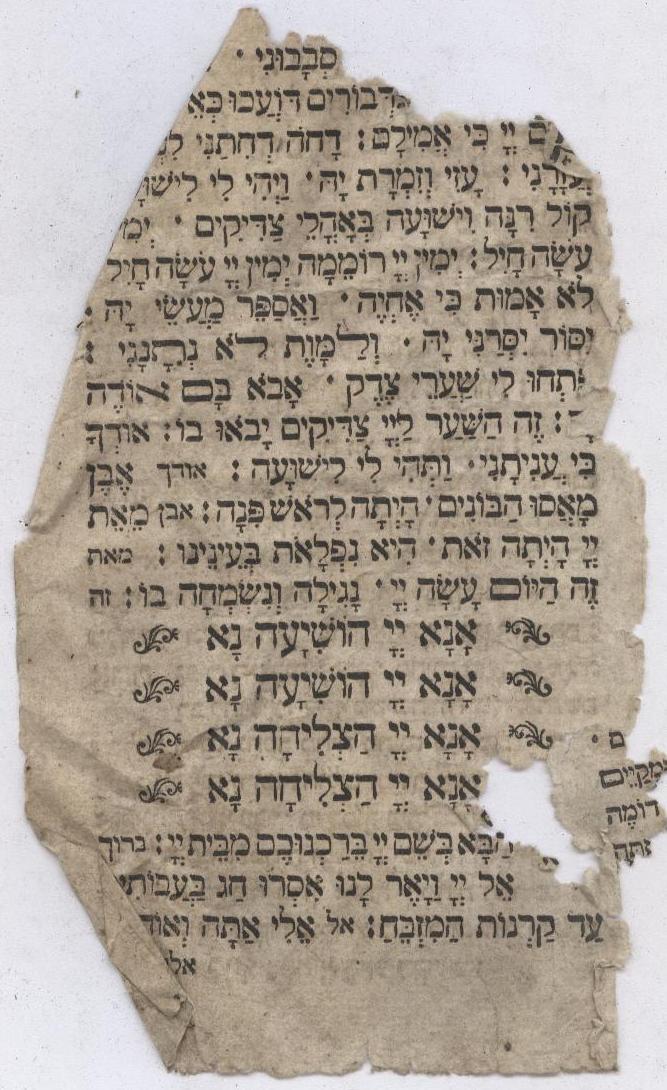 סְבָבוּנִי ·
כִדְּבוֹרִים דּוֹעֲכוּ כְּאֵ
יְיָ כִּי אֲמִילַם : דָּחֹה דְּחִתַנִּי לִנְ
עֲזָרָנִי : עָזִּי וְזִמְרָת יָהּ · וַיְהִי לִי לִישׁוּ
קוֹל רִנָּה וִישׁוּעָה בְּאָהֳלֵי צַדִּיקִים · יְמִ
עֹשָׂה חָיִל : יְמִין יְיָ רוֹמֵמָה יְמִין יְיָ עֹשָׂה חָיִל
לֹא אָמוּת כִּי אֶחְיֶה · וַאֲסַפֵּר מַעֲשֵׂי יָהּ :
יַסּוֹר יִסְּרַנִּי יָהּ · וְלַמָּוֶת לֹא נְתָנָנִי :
פִּתְחוּ לִי שַׁעֲרֵי צֶדֶק · אָבֹא בָם אוֹדֶה
: זֶה הַשַּׁעַר לַיְיָ צַדִּיקִים יָבֹאוּ בוֹ : אוֹדְךָ
כִּי עֲנִיתָנִי · וַתְּהִי לִי לִישׁוּעָה : אודך אֶבֶן
מָאֲסוּ הַבּוֹנִים · הָיְתָה לְרֹאשׁ פִּנָּה : אבן מֵאֵת
יְיָ הָיְתָה זֹּאת · הִיא נִפְלָאֹת בְּעֵינֵינוּ : מאת
זֶה הַיּוֹם עָשָׂה יְיָ · נָגִילָה וְנִשְׂמְחָה בוֹ : זה
אָנָא יְיָ הוֹשִׁיעָה נָּא
אָנָא יְיָ הוֹשִׁיעָה נָּא
אָנָא יְיָ הַצְלִיחָה נָּא
אָנָא יְיָ הַצְלִיחָה נָּא
ם ·
וּמְקַיֵּים
דוֹמֶה
אַתָּה
הַבָּא בְּשֵׁם יְיָ בֵּרַכְנוּכֶם מִבֵּית יְיָ : ברוך
אֵל יְיָ וַיָּאֶר לָנוּ אִסְרוּ חַג בַּעֲבוֹתִי
עַד קַרְנוֹת הַמִּזְבֵּחַ : אל אֵלִי אַתָּה וְאוֹד
אלי